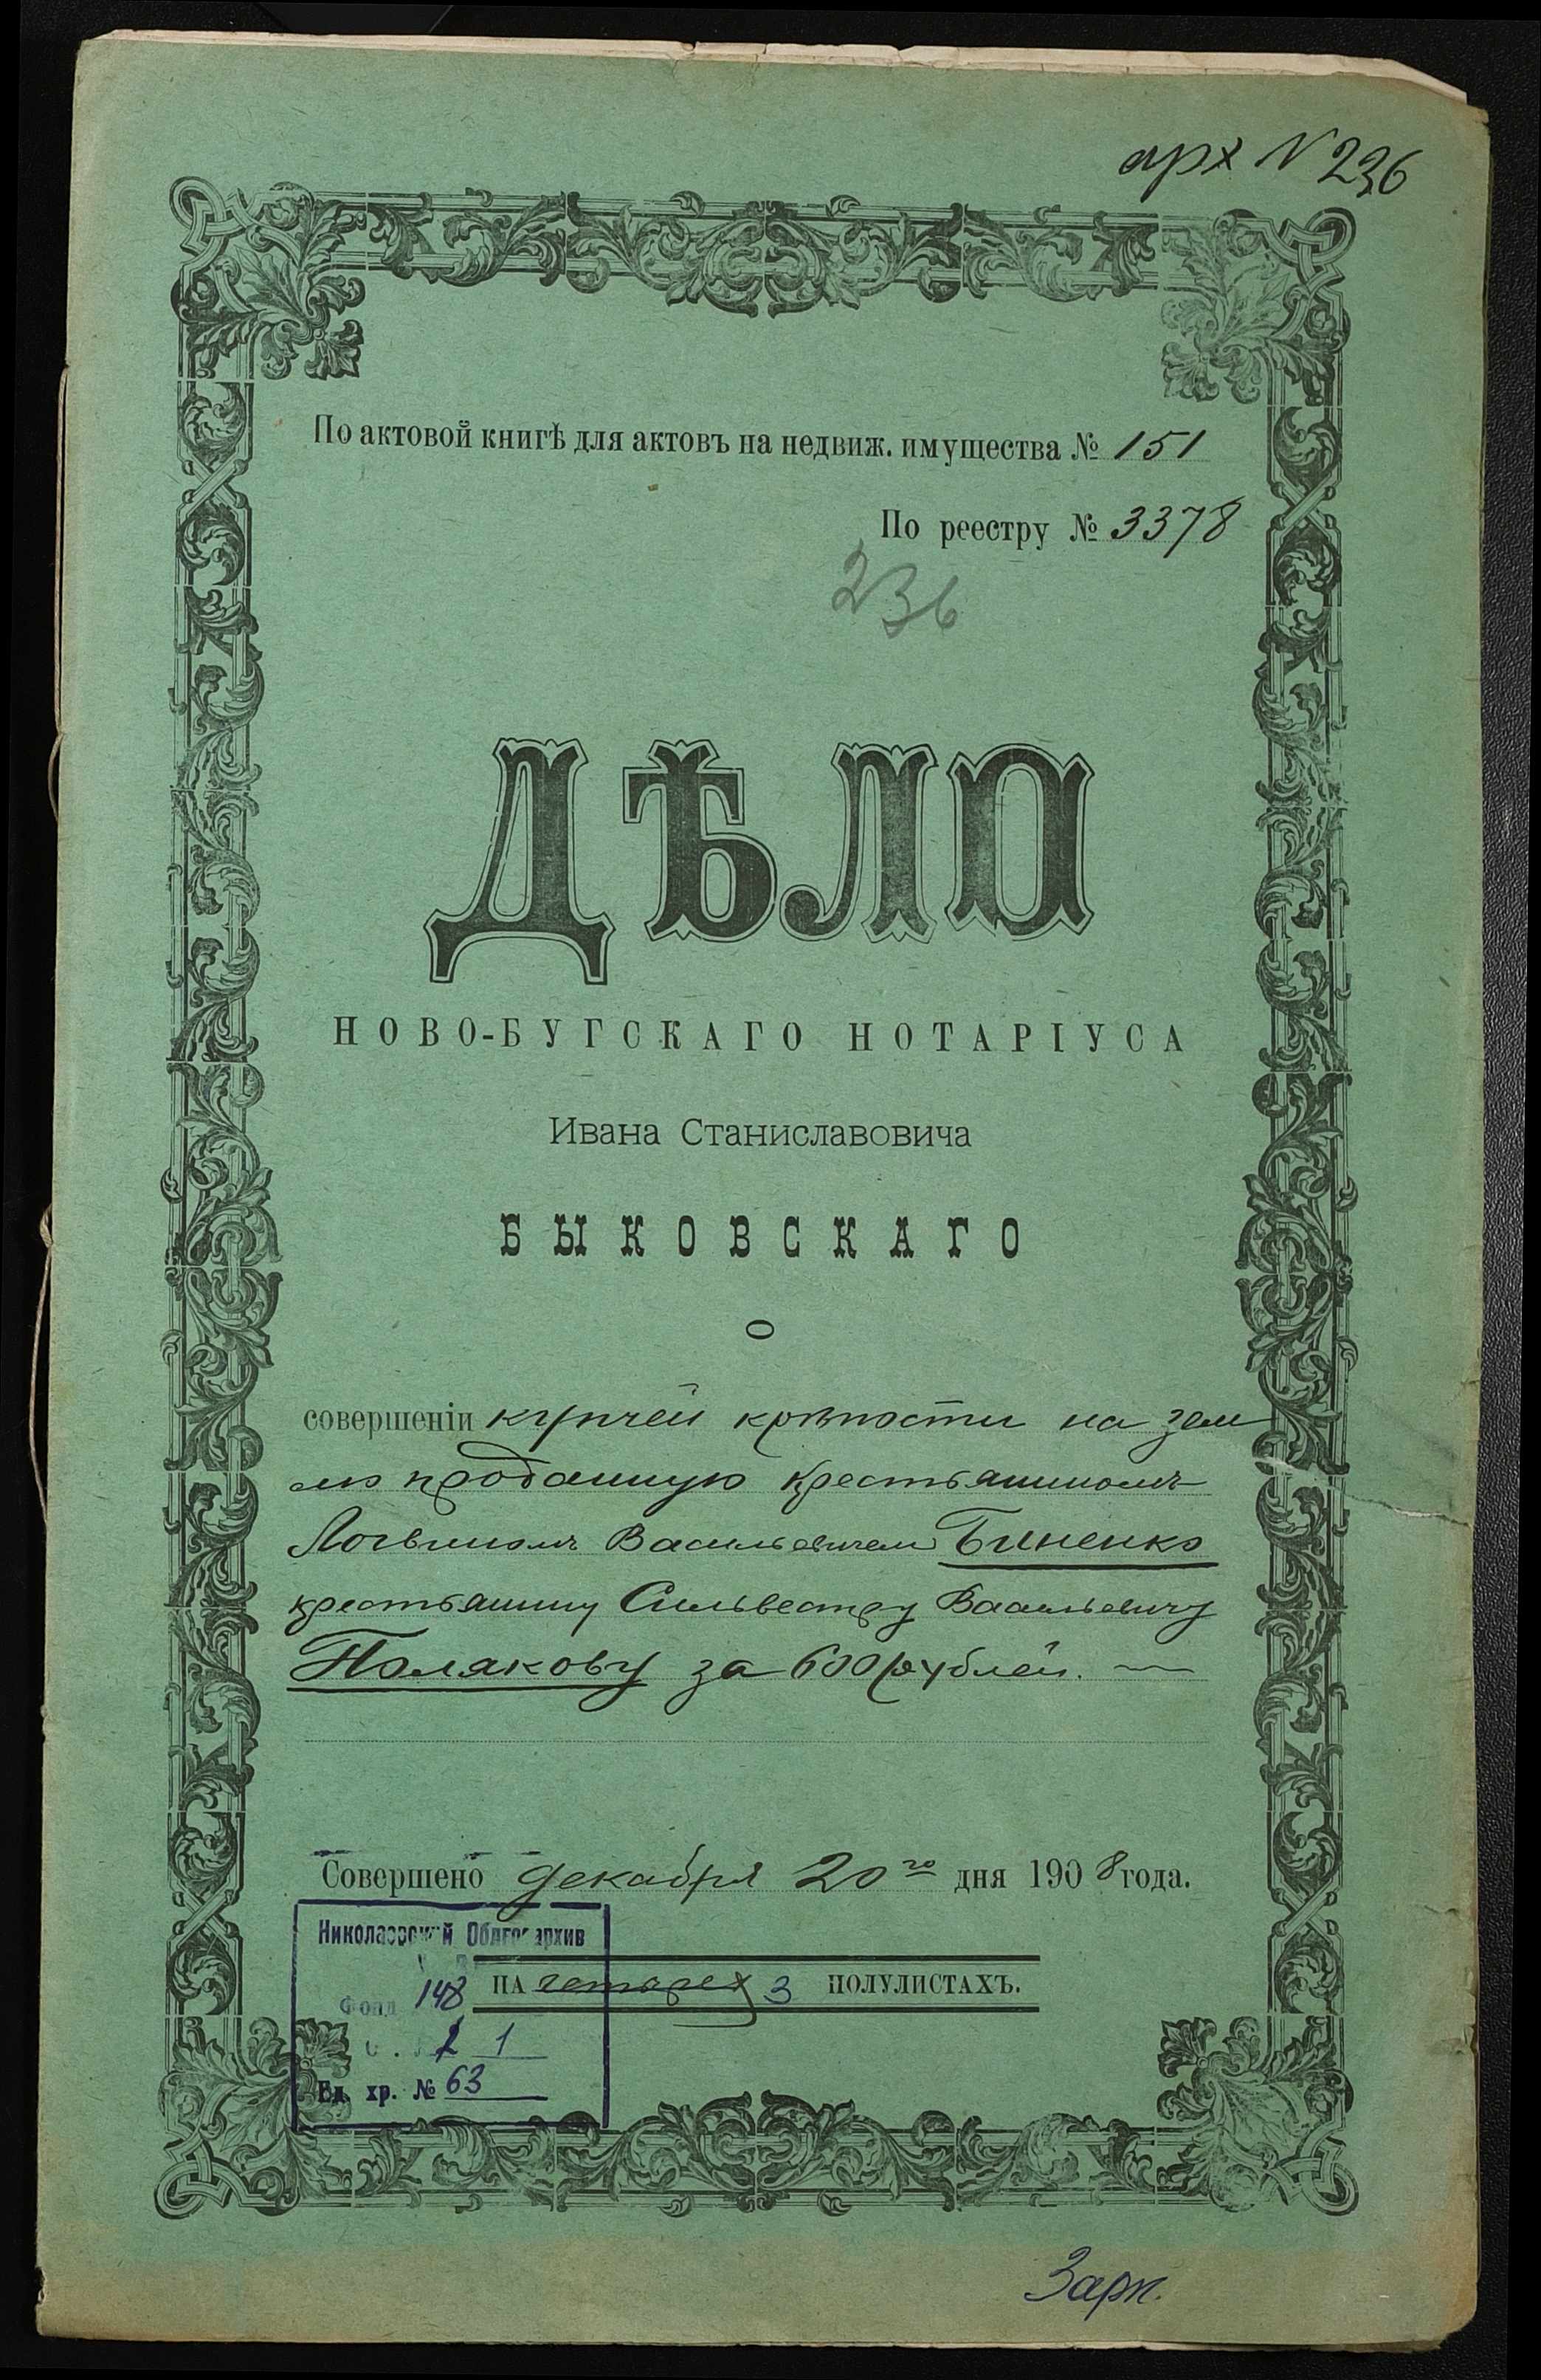 арх N 236
По актовой книгѣ для актовъ на недвиж. имущества № 151
По реестру № 3378
236
ДѢЛО
НОВО-БУГСКАГО НОТАРІУСА
Ивана Станиславовича
БЫКОВСКАГО
О
совершеніи купчей крѣпости на зем
лю проданную крестьяниномъ
Логвиномъ Васильевичем Биненко
крестьянину Сильвестру Васильевичу
Полякову за 600 рублей.
Совершено декабря 20го дня 1908 года.
Николаевский Облгосархив
НА четырех 3 ПОЛУЛИСТАХЪ.
Фонд 148
1
Ед. хр. № 63